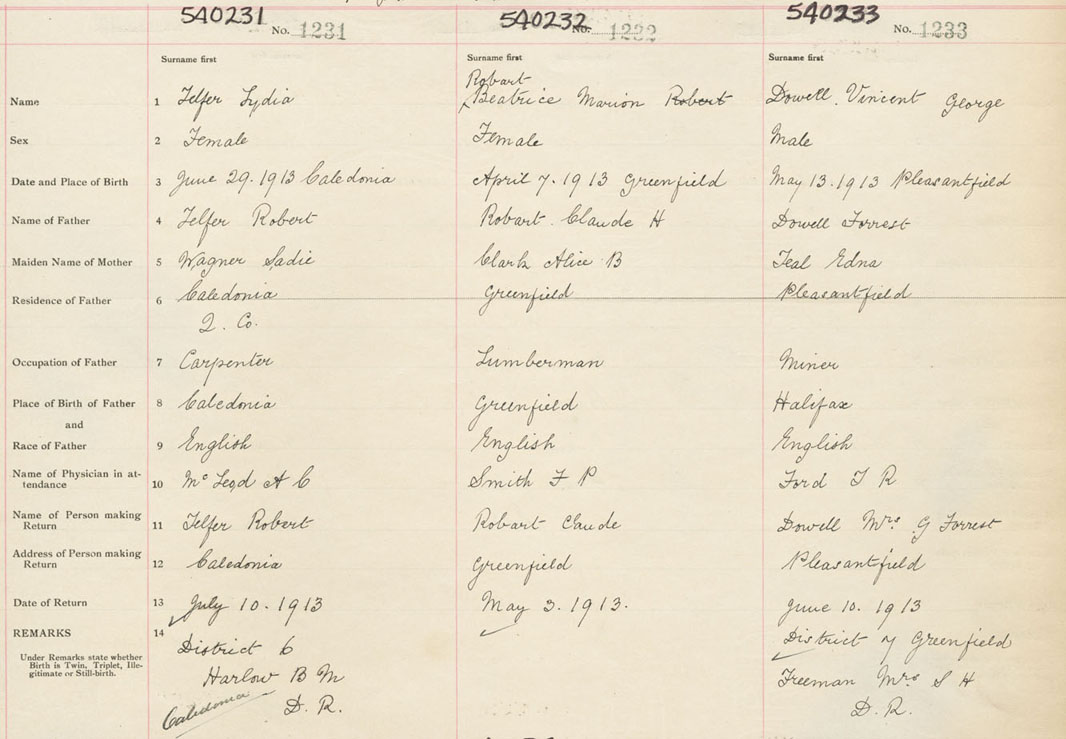 540231 No. 1231 540232 No. 1232 540233 No. 1233
Surname first Surname first Surname first
Robart
Name 1 Telfer Lydia Beatrice Marion Robert Dowell. Vincent George
Sex 2 Female Female Male
Date and Place of Birth 3 June 29. 1913 Caledonia April 7. 1913 Greenfield May 13. 1913 Pleasantfield
Name of Father 4 Telfer Robert Robart. Claude H Dowell Forrest
Maiden Name of Mother 5 Wagner Sadie Clark Alice B Teal Edna
Residence of Father 6 Caledonia Greenfield Pleasantfield
Q. Co.
Occupation of Father 7 Carpenter Lumberman Miner
Place of Birth of Father 8 Caledonia Greenfield Halifax
and
Race of Father 9 English English English
Name of Physician in at-
tendance 10 McLeod A C Smith F P Ford T R
Name of Person making
Return 11 Telfer Robert Robart Claude Dowell Mrs. G Forrest
Address of Person making
Return 12 Caledonia Greenfield Pleasantfield
Date of Return 13 July 10. 1913 May 3. 1913. June 10. 1913
REMARKS 14
District 6 District 7 Greenfield
Under Remarks state whether
Birth is Twin, Triplet, Ille-
gitimate or Still-birth.
Harlow B M Freeman Mrs. S H
Caledonia D. R. D. R.